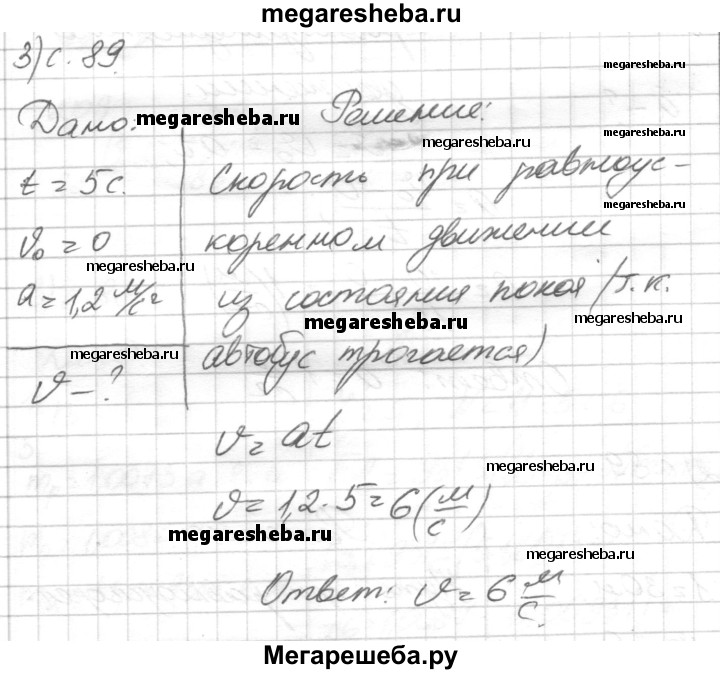 megaresheba.ru
3) с. 89
megaresheba.ru
Дано: megaresheba.ru Решение:
megaresheba.ru
megaresheba.ru
t = 5 с. Скорость при равноус-
megaresheba.ru
v₀ = 0 коренном движении
megaresheba.ru
megaresheba.ru
a = 1,2 м/с² из состояния покоя (т.к.
megaresheba.ru
megaresheba.ru
megaresheba.ru автобус трогается)
v - ?
v = at
megaresheba.ru
v = 1,2 · 5 = 6 (м/с)
megaresheba.ru
megaresheba.ru
Ответ: v = 6 м/с.
Мегарешеба.ру